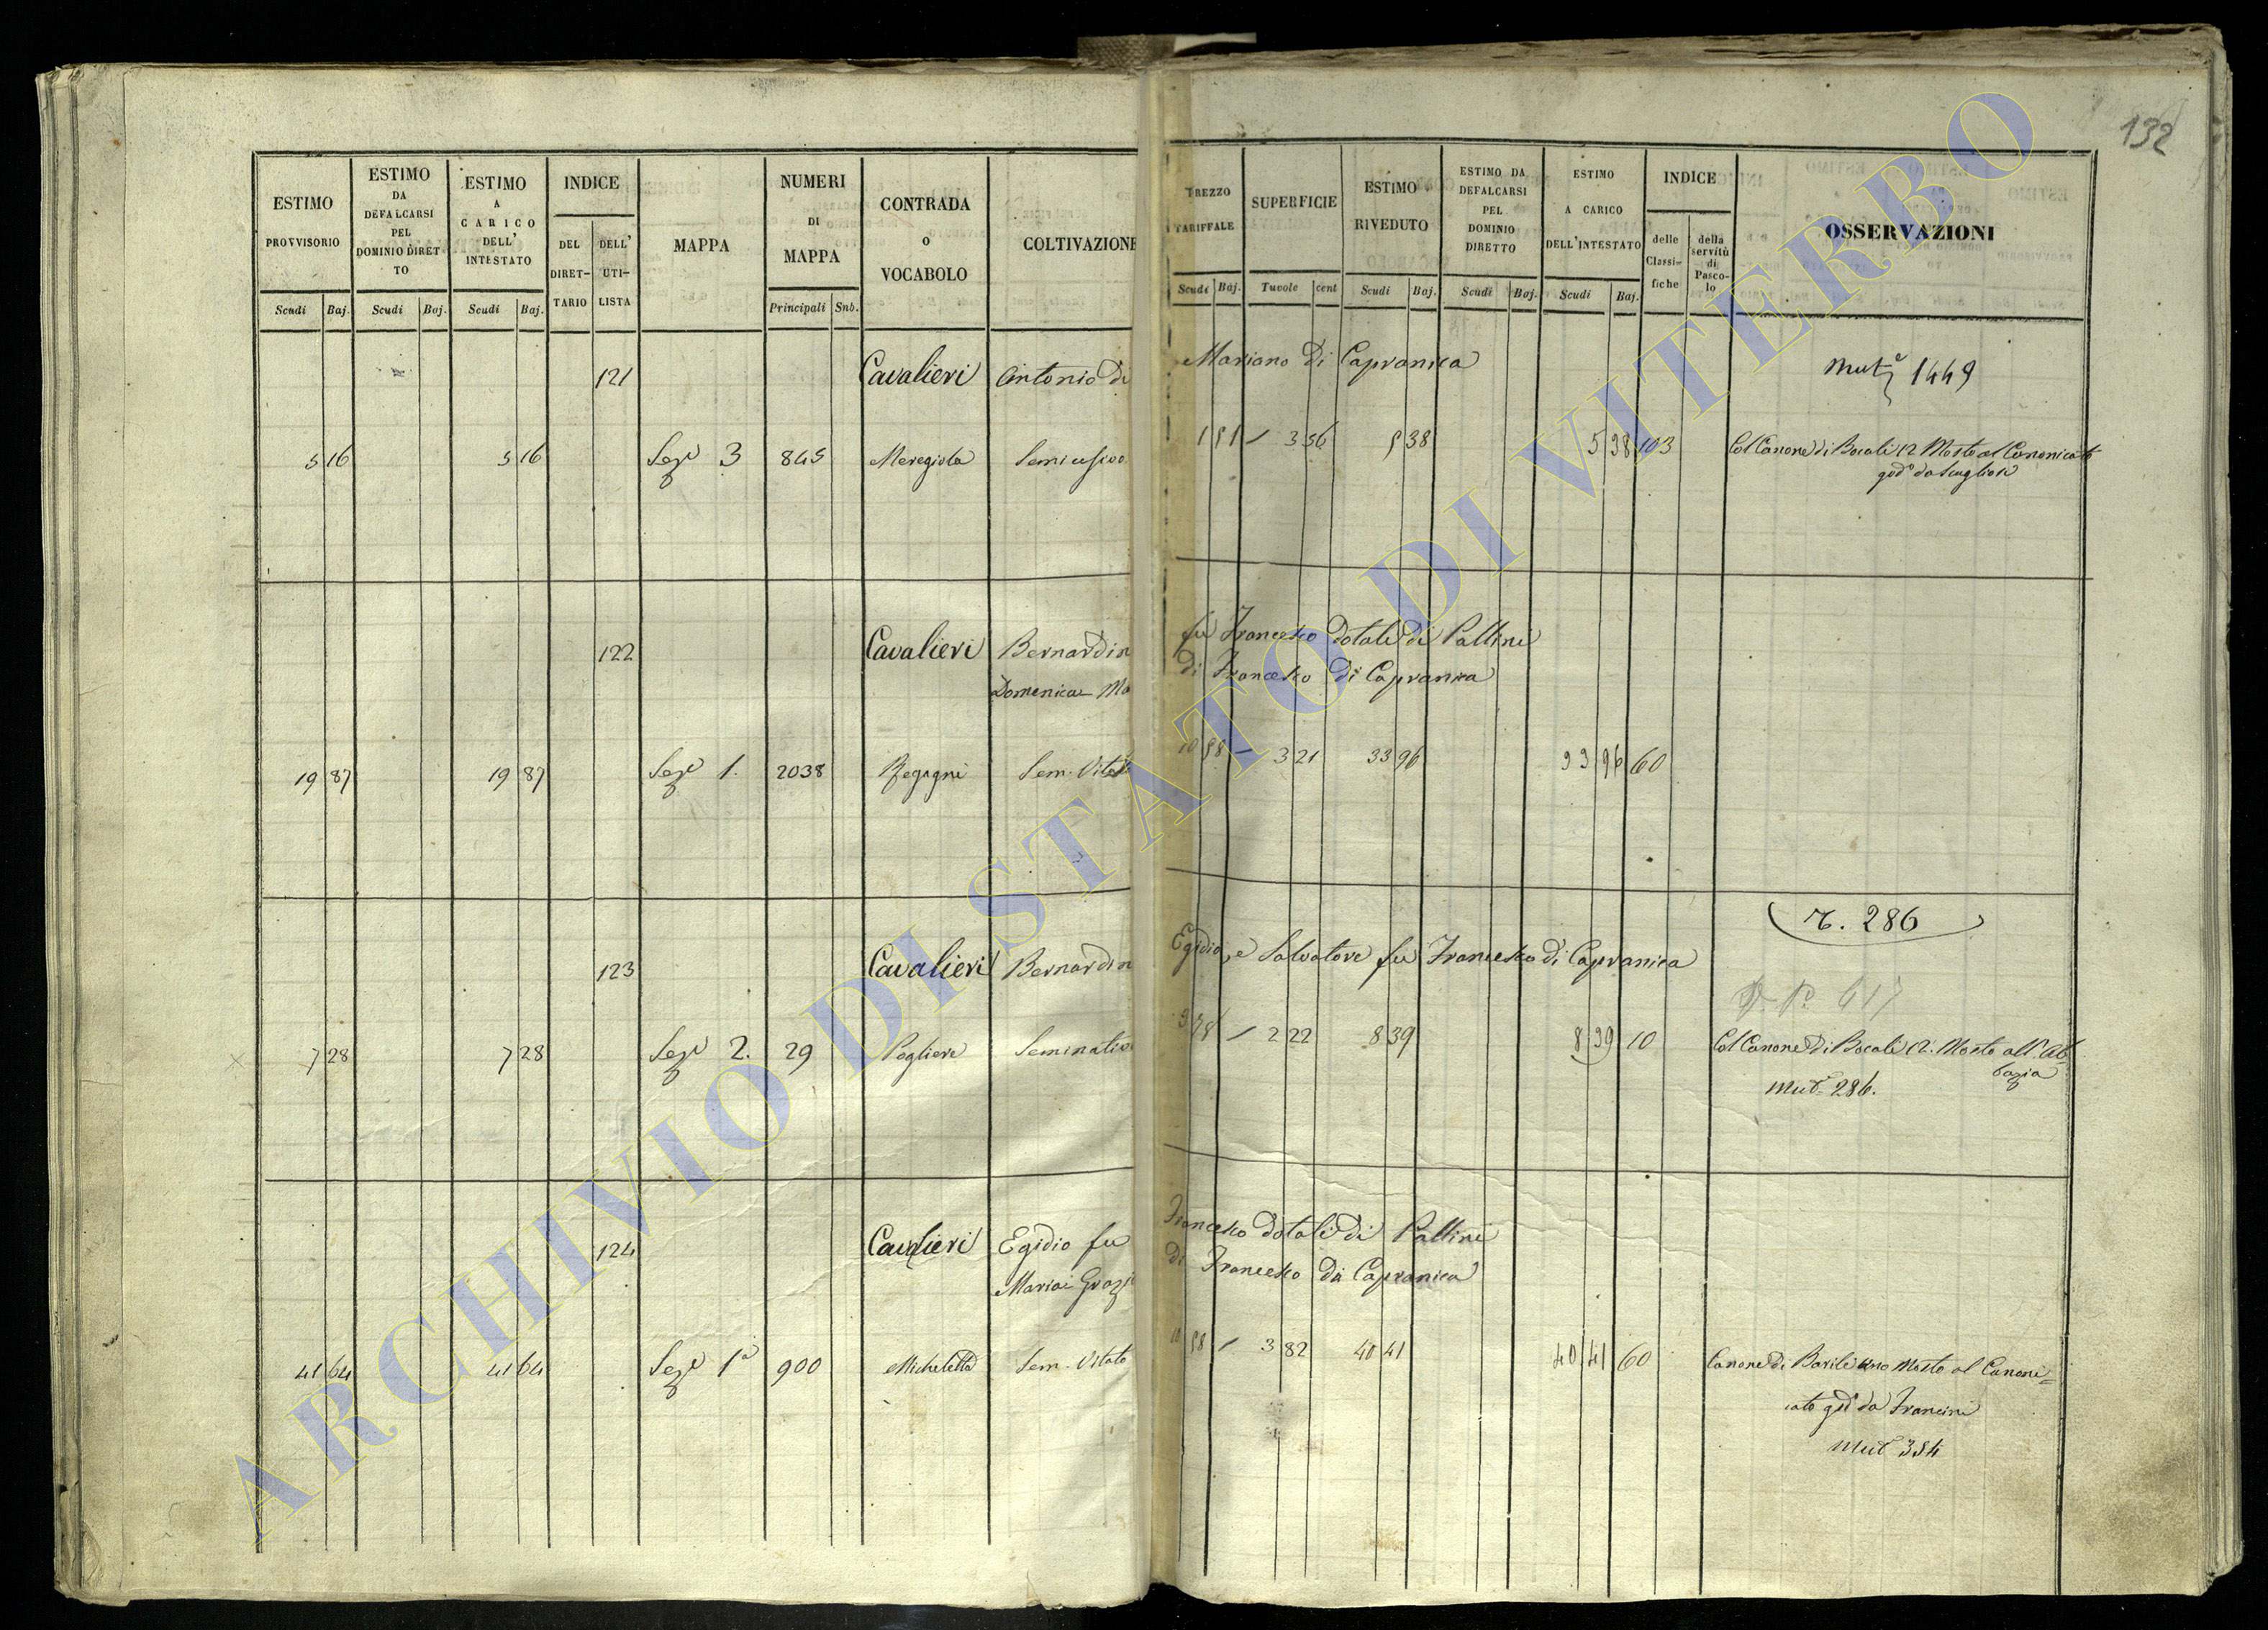 132
ESTIMO PROVVISORIO
ESTIMO DA DEFALCARSI PEL DOMINIO DIRETTO
ESTIMO A CARICO DELL' INTESTATO
INDICE
DEL DIRETTARIO
DELL' UTILISTA
MAPPA
NUMERI DI MAPPA
CONTRADA O VOCABOLO
COLTIVAZIONE
Scudi Baj. Scudi Baj. Scudi Baj. Principali Snb.
TREZZO TARIFFALE
SUPERFICIE
ESTIMO RIVEDUTO
ESTIMO DA DEFALCARSI PEL DOMINIO DIRETTO
ESTIMO A CARICO DELL'INTESTATO
INDICE
delle Classifiche
della servitù di Pascolo
OSSERVAZIONI
Scudi Baj. Tuvole cent Scudi Baj. Scudi Baj. Scudi Baj.
121 Cavalieri Antonio di Mariano di Capranica
Mut.e 1449
5 16 5 16 Sez.e 3 845 Meregiola 1 51 3 56 5 38 5 38 103 Col Canone di Bocali 12 Mosto al Canonicato
god.o da
122 Cavalieri Bernardin fu Francesco dotale di Pallini
Domenica Ma di Francesco di Capranica
19 87 19 87 Sez.e 1. 2038 Regagni Sem. Vitat 10 58 3 21 33 96 33 96 60
r. 286
123 Cavalieri Bernardin Egidio, e Salvatore fu Francesco di Capranica
617
7 28 7 28 Sez.e 2. 29 Pogliere Seminativo 3 78 2 22 8 39 8 39 10 Col Canone di Bocali 12. Mosto all'Ab
bazia
Mut. 286.
124 Cavalieri Egidio fu Francesco dotale di Pallini
Maria Grazi di Francesco da Capranica
41 64 41 64 Sez.e 1a 900 Micheletta Sem. Vitato 10 58 3 82 40 41 40 41 60 Canone di Barile uno Mosto al Canoni=
cato god.o da Francini
Mut. 354
ARCHIVIO DI STATO DI VITERBO